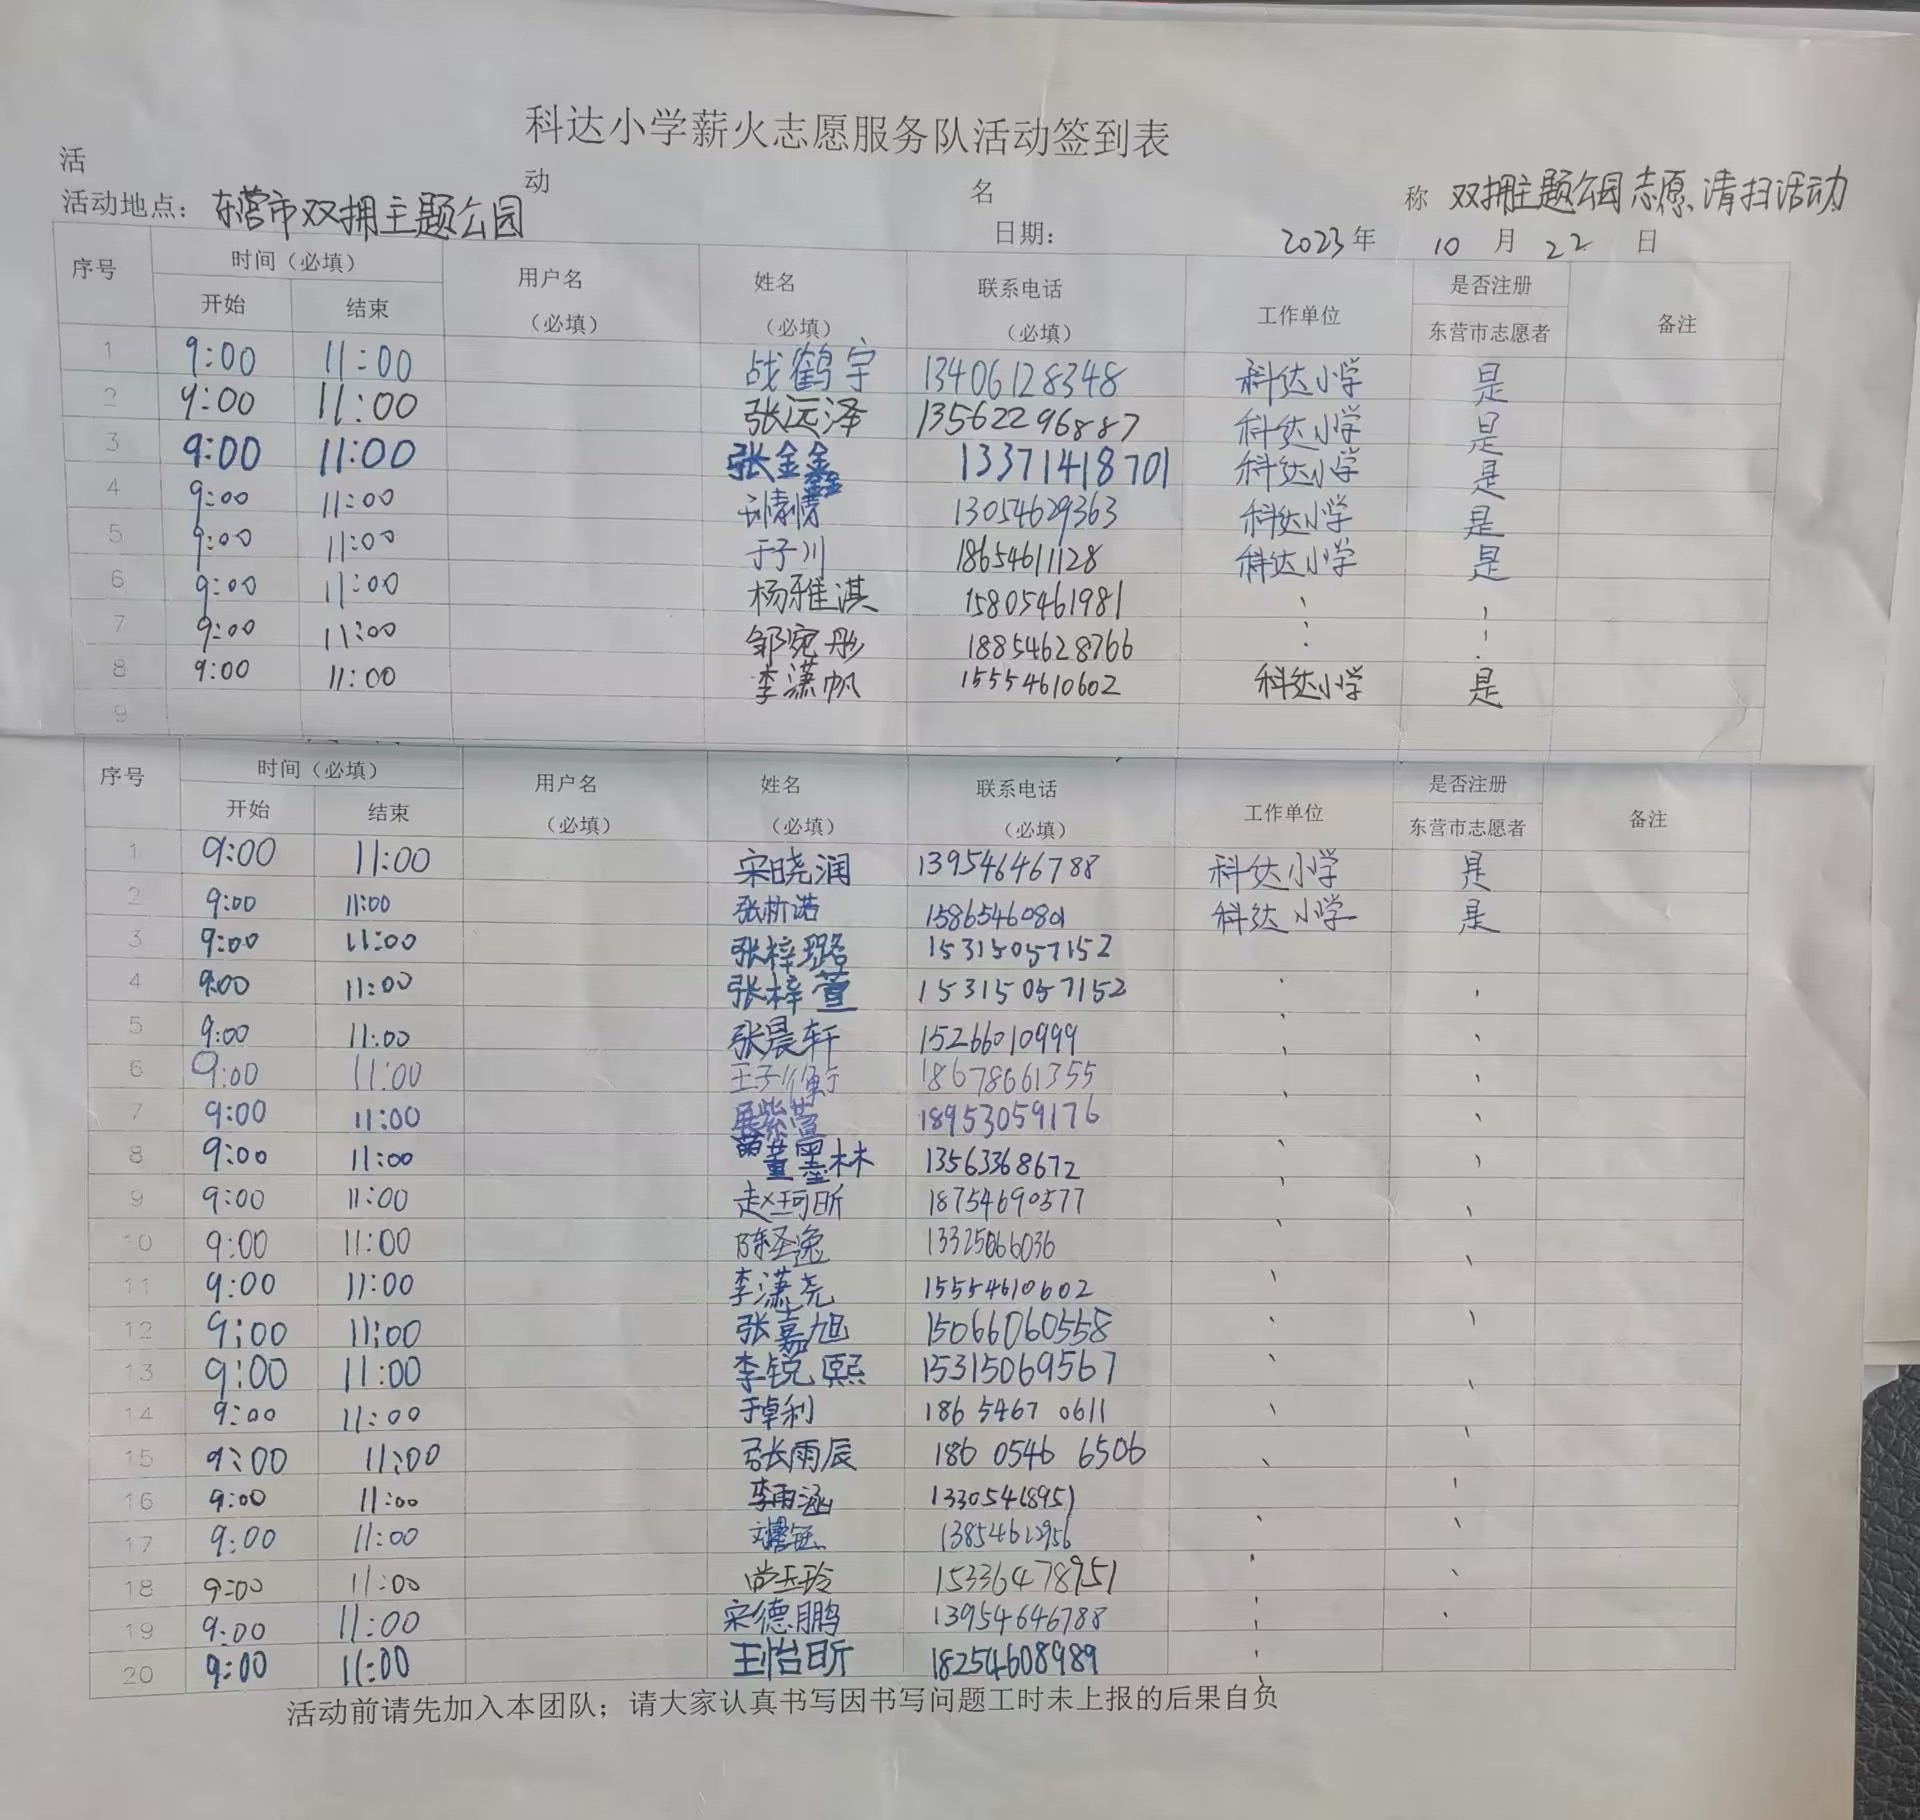 科达小学薪火志愿服务队活动签到表
活 动 名 称 双拥主题公园志愿清扫活动
活动地点：东营市双拥主题公园 日期： 2023年 10 月 22 日
序号 时间（必填） 用户名 姓名 联系电话 工作单位 是否注册 备注
开始 结束 （必填） （必填） （必填） 东营市志愿者
1 9:00 11:00 战鹤宇 13406128348 科达小学 是
2 9:00 11:00 张远泽 13562296887 科达小学 是
3 9:00 11:00 张金鑫 13371418701 科达小学 是
4 9:00 11:00 13054629363 科达小学 是
5 9:00 11:00 于子川 18654611128 科达小学 是
6 9:00 11:00 杨雅淇 15805461981
7 9:00 11:00 邹宛彤 18854628766
8 9:00 11:00 李潇帆 15554610602 科达小学 是
9
序号 时间（必填） 用户名 姓名 联系电话 工作单位 是否注册 备注
开始 结束 （必填） （必填） （必填） 东营市志愿者
1 9:00 11:00 宋晓润 13954646788 科达小学 是
2 9:00 11:00 张析诺 15865460801 科达小学 是
3 9:00 11:00 张梓璐 15315057152
4 9:00 11:00 张梓萱 15315057152
5 9:00 11:00 张晨轩 15266010999
6 9:00 11:00 王子衡 18678661355
7 9:00 11:00 展紫萱 18953059176
8 9:00 11:00 董墨林 13563368672
9 9:00 11:00 赵珂昕 18754690577
10 9:00 11:00 陈圣逸 13325066036
11 9:00 11:00 李潇尧 15554610602
12 9:00 11:00 张嘉旭 15066060558
13 9:00 11:00 李锐熙 15315069567
14 9:00 11:00 于卓利 186 5467 0611
15 9:00 11:00 张雨辰 186 0546 6506
16 9:00 11:00 李雨涵 13305468951
17 9:00 11:00 13854612956
18 9:00 11:00 尚玉玲 15336478951
19 9:00 11:00 宋德鹏 13954646788
20 9:00 11:00 王怡昕 18254608989
活动前请先加入本团队；请大家认真书写因书写问题工时未上报的后果自负